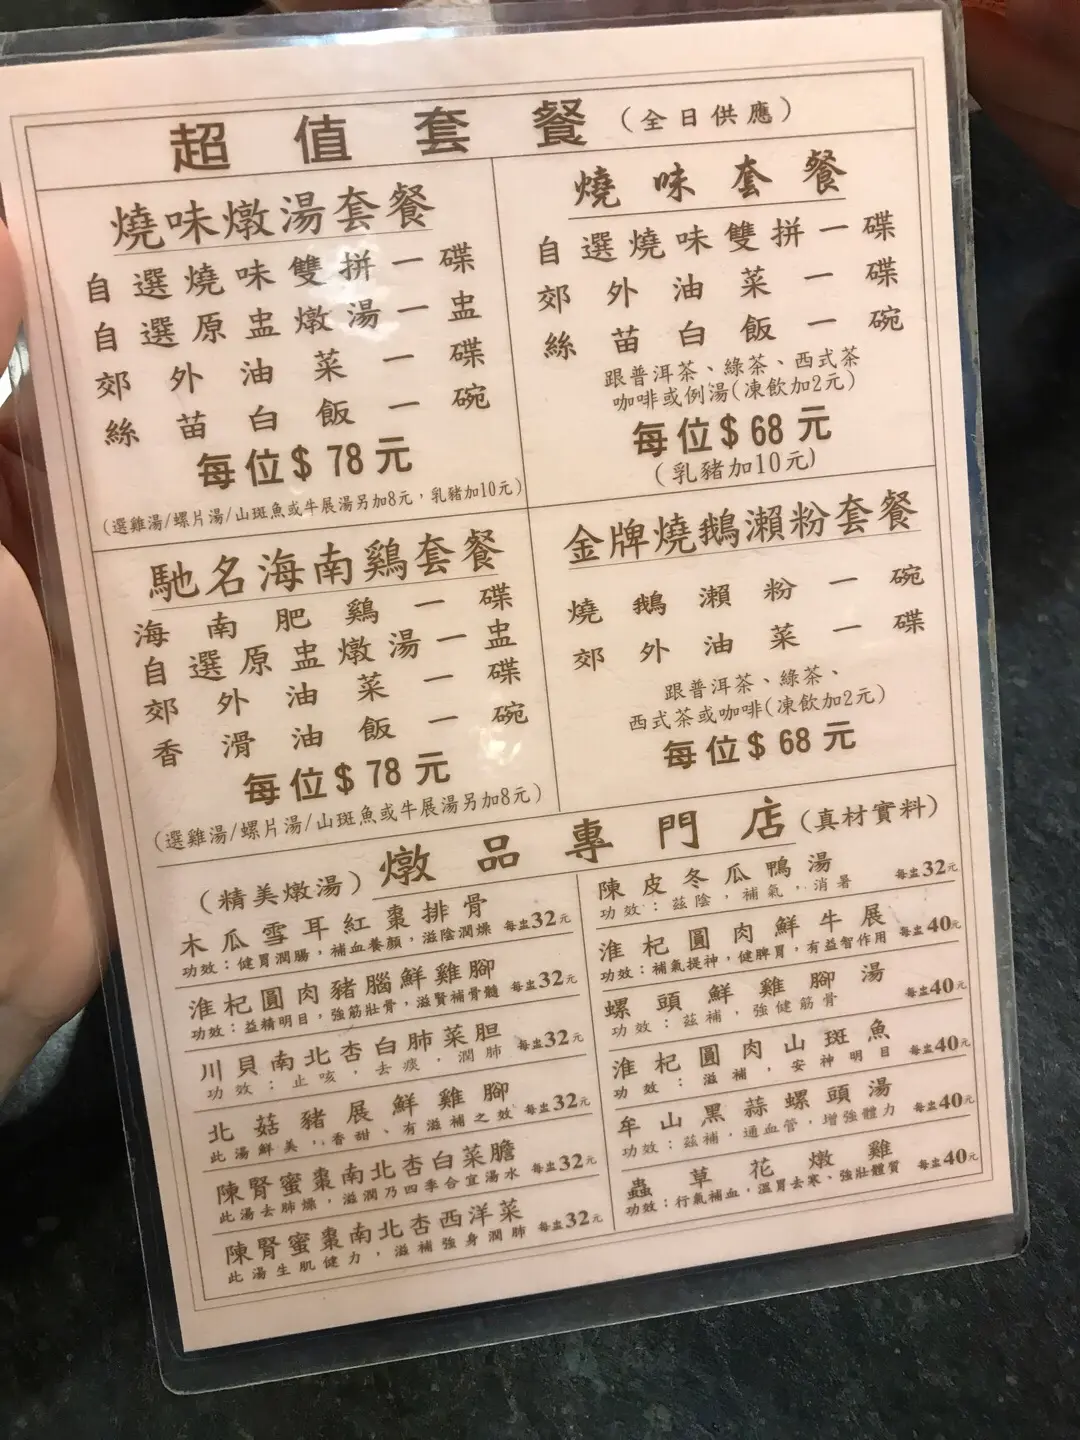 超值套餐(全日供應)
燒味燉湯套餐
自選燒味雙拼一碟
自選原盅燉湯一盅
郊外油菜一碟
絲苗白飯一碗
每位$78元
(選雞湯/螺片湯/山斑魚或牛展湯另加8元，乳豬加10元)
燒味套餐
自選燒味雙拼一碟
郊外油菜一碟
絲苗白飯一碗
跟普洱茶、綠茶、西式茶
咖啡或例湯(凍飲加2元)
每位$68元
(乳豬加10元)
馳名海南鷄套餐
海南肥鷄一碟
自選原盅燉湯一盅
郊外油菜一碟
香滑油飯一碗
每位$78元
(選雞湯/螺片湯/山斑魚或牛展湯另加8元)
金牌燒鵝瀨粉套餐
燒鵝瀨粉一碗
郊外油菜一碟
跟普洱茶、綠茶、
西式茶或咖啡(凍飲加2元)
每位$68元
(精美燉湯)燉品專門店(真材實料)
木瓜雪耳紅棗排骨 每盅32元
功效：健胃潤腸，補血養顏，滋陰潤燥
淮杞圓肉豬腦鮮雞腳 每盅32元
功效：益精明目，強筋壯骨，滋賢補骨髓
川貝南北杏白肺菜胆 每盅32元
功效：止咳，去痰，潤肺
北菇豬展鮮雞腳 每盅32元
此湯鮮美，香甜、有滋補之效
陳腎蜜棗南北杏白菜膽 每盅32元
此湯去肺燥，滋潤乃四季合宜湯水
陳腎蜜棗南北杏西洋菜 每盅32元
此湯生肌健力，滋補強身潤肺
陳皮冬瓜鴨湯 每盅32元
功效：茲陰，補氣，消暑
淮杞圓肉鮮牛展 每盅40元
功效：補氣提神，健脾胃，有益智作用
螺頭鮮雞腳湯 每盅40元
功效：茲補，強健筋骨
淮杞圓肉山斑魚 每盅40元
功效：滋補，安神明目
牟山黑蒜螺頭湯 每盅40元
功效：茲補，通血管，增強體力
蟲草花燉雞 每盅40元
功效：行氣補血，溫胃去寒、強壯體質